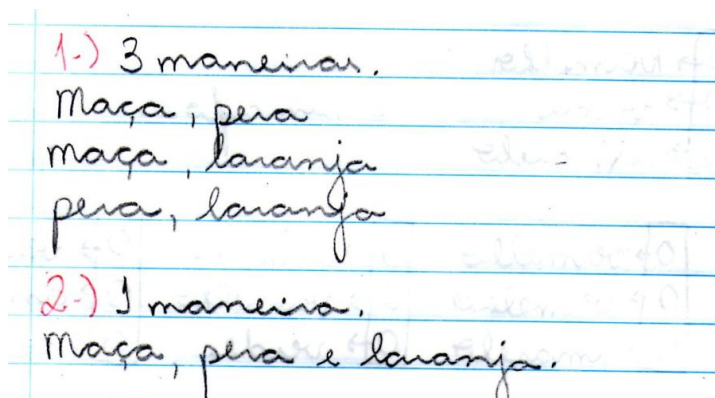 1-) 3 maneiras.
Maça, pera
maça, laranja
pera, laranja
2-) 1 maneira.
Maça, pera e laranja.